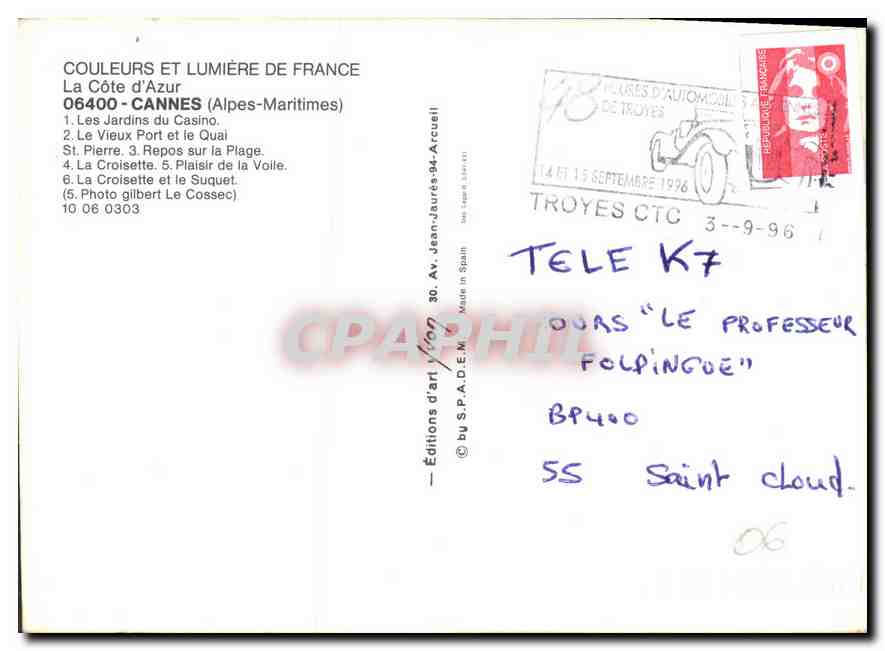 COULEURS ET LUMIÈRE DE FRANCE
La Côte d'Azur
06400 - CANNES (Alpes-Maritimes)
1. Les Jardins du Casino.
2. Le Vieux Port et le Quai
St. Pierre. 3. Repos sur la Plage.
4. La Croisette. 5. Plaisir de la Voile.
6. La Croisette et le Suquet.
(5. Photo gilbert Le Cossec)
10 06 0303
— Éditions d'art yvon 30. Av. Jean-Jaurès-94-Arcueil
© by S.P.A.D.E.M. Made in Spain
CPAPHIL
48 HEURES D'AUTOMOBILES
DE TROYES
14 ET 15 SEPTEMBRE 1996
TROYES CTC 3--9-96
RÉPUBLIQUE FRANÇAISE
TELE K7
OURS "LE PROFESSEUR
FOLPINGUE"
BP400
55 Saint Cloud.
06